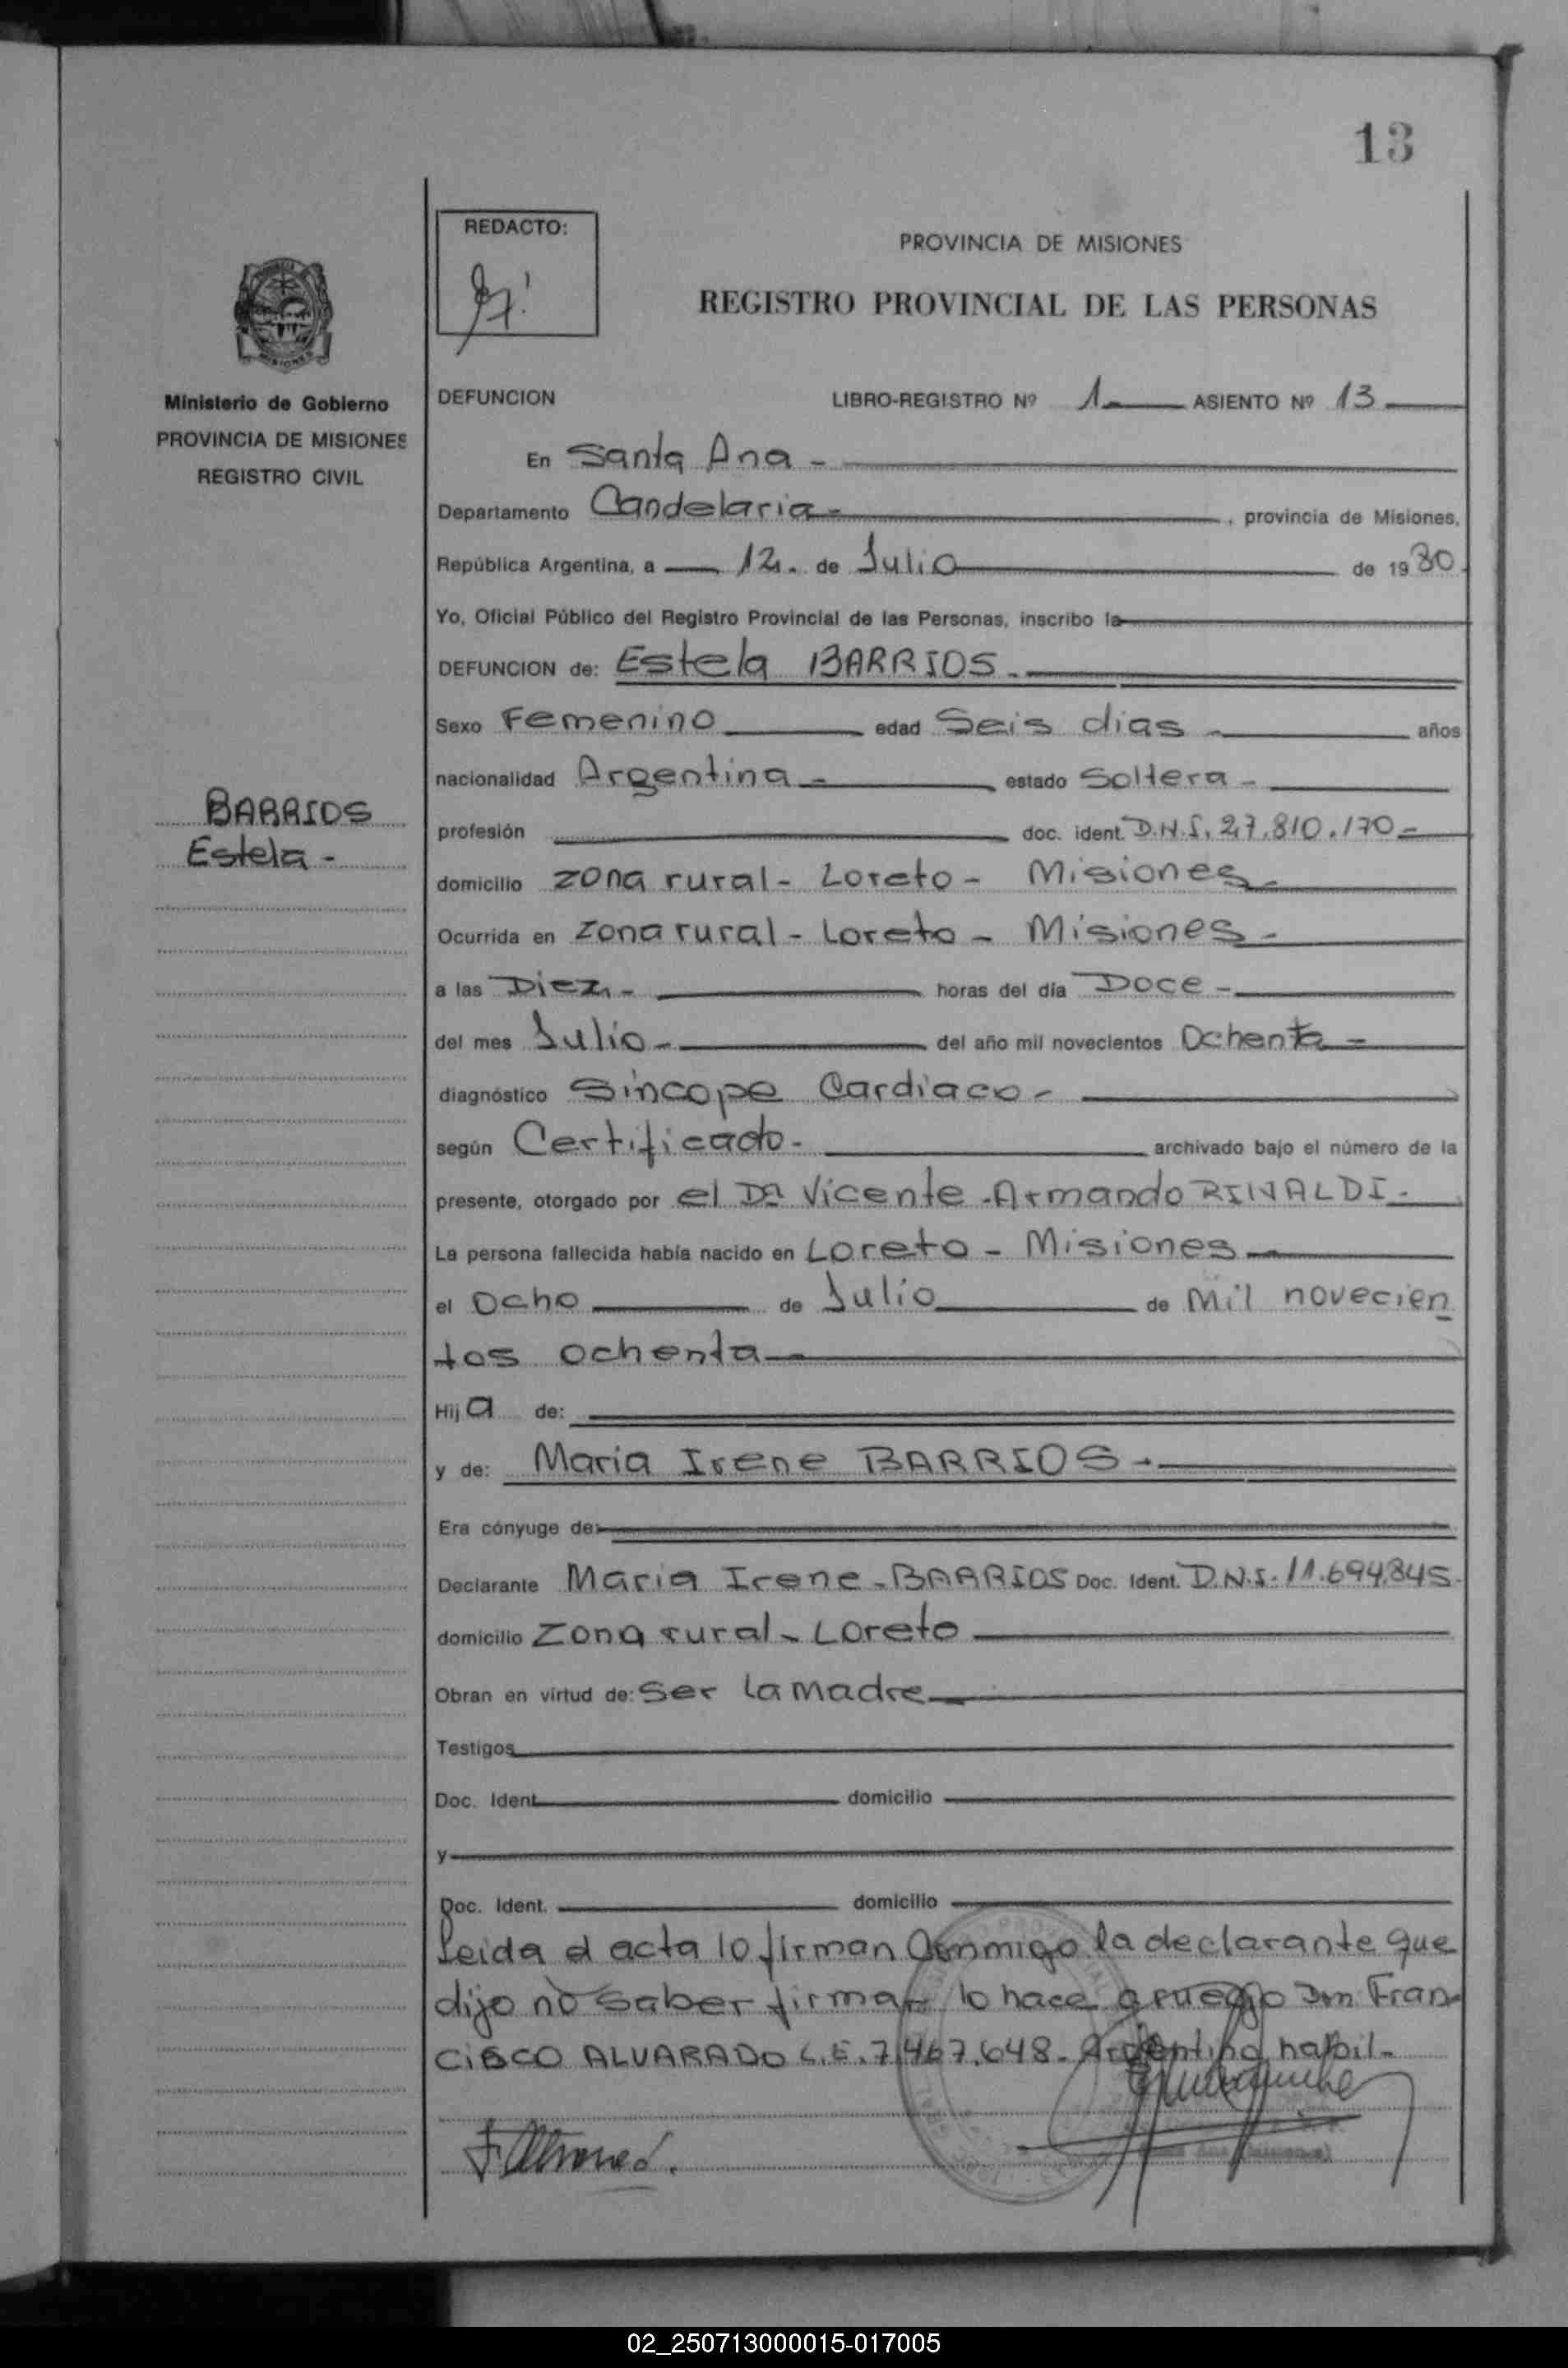 13
REDACTO:
PROVINCIA DE MISIONES
REGISTRO PROVINCIAL DE LAS PERSONAS
Ministerio de Gobierno
PROVINCIA DE MISIONES
REGISTRO CIVIL
DEFUNCION LIBRO-REGISTRO Nº 1 ASIENTO Nº 13
En Santa Ana -
Departamento Candelaria - , provincia de Misiones,
República Argentina, a 12. de Julio de 1980.
Yo, Oficial Público del Registro Provincial de las Personas, inscribo la
DEFUNCION de: Estela BARRIOS.
Sexo Femenino edad Seis dias años
nacionalidad Argentina - estado Soltera -
BARRIOS
Estela -
profesión doc. ident. D.N.I. 27.810.170 -
domicilio zona rural - Loreto - Misiones -
Ocurrida en zona rural - Loreto - Misiones -
a las Diez - horas del día Doce -
del mes Julio - del año mil novecientos Ochenta -
diagnóstico Sincope Cardiaco -
según Certificado - archivado bajo el número de la
presente, otorgado por el Dr Vicente Armando RINALDI -
La persona fallecida había nacido en Loreto - Misiones
el Ocho de Julio de Mil novecien
tos ochenta
Hija de:
y de: Maria Irene BARRIOS -
Era cónyuge de:
Declarante Maria Irene BARRIOS Doc. Ident. D.N.I. 11.694.845.
domicilio Zona rural - Loreto
Obran en virtud de: Ser la madre
Testigos
Doc. Ident. domicilio
y
Doc. Ident. domicilio
Leida el acta lo firman Conmigo la declarante que
dijo no saber firmar lo hace a ruego Don Fran
CISCO ALVARADO L.E. 7.467.648 - Argentino, habil -
02_250713000015-017005